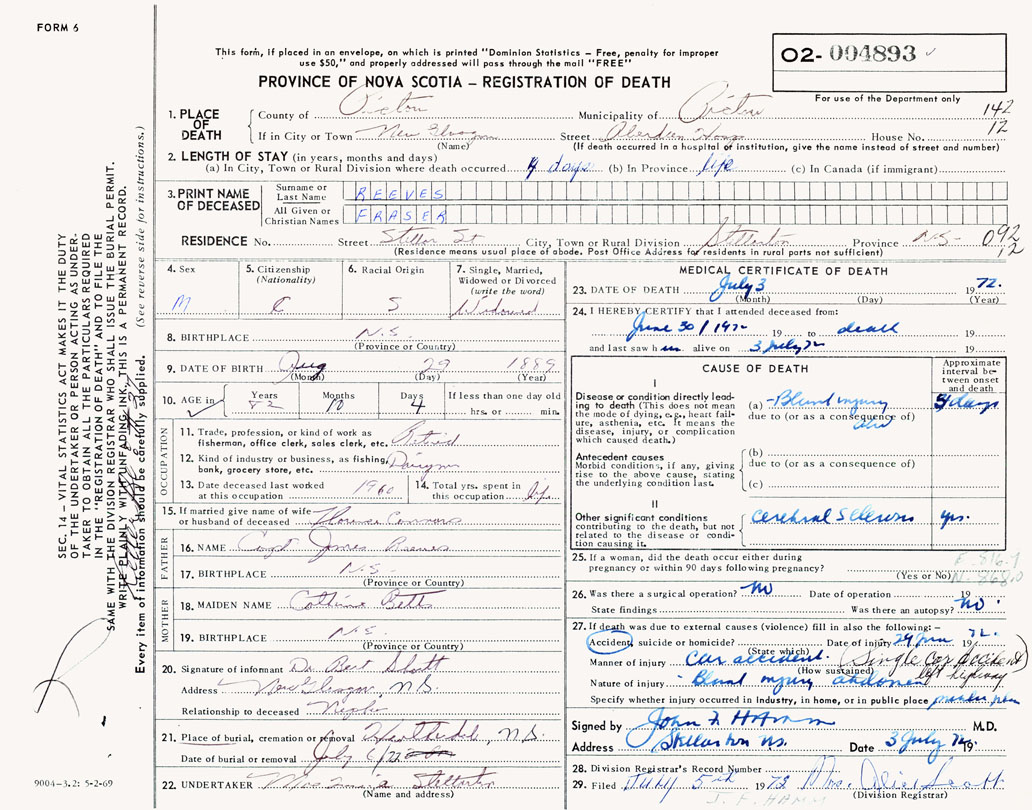 FORM 6
This form, if placed in an envelope, on which is printed "Dominion Statistics – Free, penalty for improper
use $50," and properly addressed will pass through the mail "FREE"
PROVINCE OF NOVA SCOTIA – REGISTRATION OF DEATH
O2- 004893
For use of the Department only
1. PLACE OF DEATH
County of Pictou Municipality of Pictou 142
If in City or Town New Glasgow Street Aberdeen Hosp House No. 12
(Name) (If death occurred in a hospital or institution, give the name instead of street and number)
2. LENGTH OF STAY (in years, months and days)
(a) In City, Town or Rural Division where death occurred 4 days (b) In Province life (c) In Canada (if immigrant)
3. PRINT NAME OF DECEASED
Surname or Last Name REEVES
All Given or Christian Names FRASER
RESIDENCE No. Street Stellar St City, Town or Rural Division Stellarton Province N.S. 092
(Residence means usual place of abode. Post Office Address for residents in rural parts not sufficient) 12
4. Sex M
5. Citizenship (Nationality) C
6. Racial Origin S
7. Single, Married, Widowed or Divorced (write the word) Widowed
8. BIRTHPLACE N.S.
(Province or Country)
9. DATE OF BIRTH Aug 29 1889
(Month) (Day) (Year)
10. AGE in Years 82 Months 10 Days 4 If less than one day old hrs. or min.
OCCUPATION
11. Trade, profession, or kind of work as fisherman, office clerk, sales clerk, etc. Retired
12. Kind of industry or business, as fishing, bank, grocery store, etc. Dairyman
13. Date deceased last worked at this occupation 1960
14. Total yrs. spent in this occupation life
15. If married give name of wife or husband of deceased Florence Connors
FATHER
16. NAME Capt James Reeves
17. BIRTHPLACE N.S.
(Province or Country)
MOTHER
18. MAIDEN NAME Catherine Betts
19. BIRTHPLACE N.S.
(Province or Country)
20. Signature of informant Dr. Bert
Address New Glasgow, N.S.
Relationship to deceased Nephew
21. Place of burial, cremation or removal N.S.
Date of burial or removal July 6/72
22. UNDERTAKER Stellarton
(Name and address)
MEDICAL CERTIFICATE OF DEATH
23. DATE OF DEATH July 3 1972.
(Month) (Day) (Year)
24. I HEREBY CERTIFY that I attended deceased from:
June 30/1972 19 to death 19
and last saw him alive on 3 July 72 19
CAUSE OF DEATH
Approximate interval between onset and death
I
Disease or condition directly leading to death (This does not mean the mode of dying, e.g., heart failure, asthenia, etc. It means the disease, injury, or complication which caused death.)
(a) Blunt injury days
due to (or as a consequence of)
abd
Antecedent causes
Morbid conditions, if any, giving rise to the above cause, stating the underlying condition last.
(b)
due to (or as a consequence of)
(c)
II
Other significant conditions contributing to the death, but not related to the disease or condition causing it.
Cerebral Sclerosis yrs.
25. If a woman, did the death occur either during
pregnancy or within 90 days following pregnancy?
(Yes or No)
26. Was there a surgical operation? No Date of operation 19
State findings Was there an autopsy? No.
27. If death was due to external causes (violence) fill in also the following:–
Accident, suicide or homicide? Date of injury 29 June 1972.
(State which)
Manner of injury Car accident. (Single Car Accident)
(How sustained) left highway
Nature of injury Blunt injury abdomen
Specify whether injury occurred in Industry, in home, or in public place
Signed by John F Hamm M.D.
Address Stellarton NS. Date 3 July 72 19
28. Division Registrar's Record Number
29. Filed July 5th 1972 Mrs. Scott
(Division Registrar)
J. F. HAMM
SEC. 14 – VITAL STATISTICS ACT MAKES IT THE DUTY
OF THE UNDERTAKER OR PERSON ACTING AS UNDER-
TAKER TO OBTAIN ALL THE PARTICULARS REQUIRED
IN THE "REGISTRATION OF DEATH" AND TO FILE THE
SAME WITH THE DIVISION REGISTRAR WHO SHALL ISSUE THE BURIAL PERMIT.
WRITE PLAINLY WITH UNFADING INK, THIS IS A PERMANENT RECORD.
Every item of information should be carefully supplied. (See reverse side for instructions.)
9004-3.2: 5-2-69